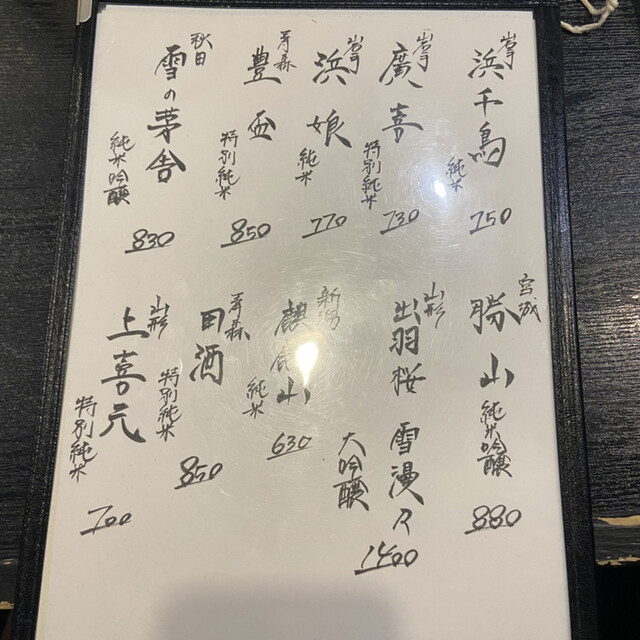 岩手
浜千鳥
純米
750
岩手
廣喜
特別純米
730
岩手
浜娘
純米
770
青森
豊盃
特別純米
850
秋田
雪の茅舎
純米吟醸
830
宮城
勝山
純米吟醸
880
山形
出羽桜 雪漫々
大吟醸
1400
新潟
麒麟山
純米
630
青森
田酒
特別純米
850
山形
上喜元
特別純米
700